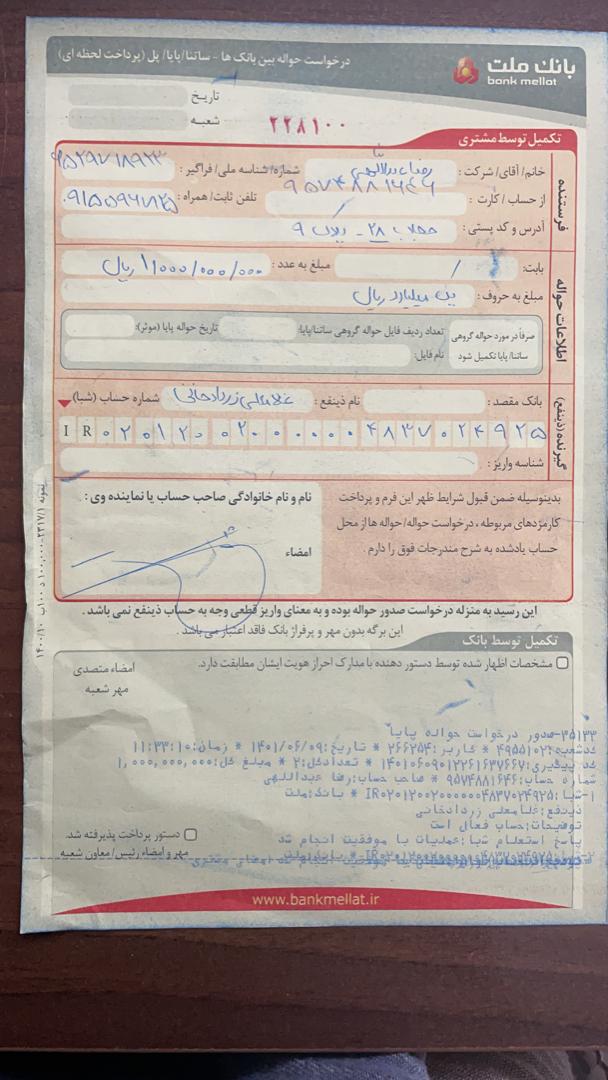 بانک ملت
bank mellat
درخواست حواله بین بانک ها - ساتنا/پایا/پل (پرداخت لحظه ای)
تاریخ
شعبه :
۲۲۸۱۰۰
تکمیل توسط مشتری
فرستنده
خانم/آقای/شرکت : رضا عبداللهی شماره/شناسه ملی/فراگیر :
از حساب/کارت : ۹۵۷۴۸۸۱۶۴۶ تلفن ثابت/همراه :
آدرس و کد پستی : حجاب ۲۸ - پلاک ۹
اطلاعات حواله
بابت : / مبلغ به عدد : ۱/۰۰۰/۰۰۰/۰۰۰ ریال
مبلغ به حروف : یک میلیارد ریال
صرفاً در مورد حواله گروهی ساتنا/پایا تکمیل شود
تعداد ردیف فایل حواله گروهی ساتنا/پایا: تاریخ حواله پایا (موثر):
نام فایل:
گیرنده (ذینفع)
بانک مقصد : نام ذینفع : غلامعلی زردادخانی شماره حساب (شبا)
IR ۰۲۰۱۲۰۰۲۰۰۰۰۰۰۴۸۳۷۰۲۴۹۲۵
شناسه واریز :
بدینوسیله ضمن قبول شرایط ظهر این فرم و پرداخت
کارمزدهای مربوطه ، درخواست حواله/حواله ها از محل
حساب یادشده به شرح مندرجات فوق را دارم .
نام و نام خانوادگی صاحب حساب یا نماینده وی :
امضاء
این رسید به منزله درخواست صدور حواله بوده و به معنای واریز قطعی وجه به حساب ذینفع نمی باشد .
این برگه بدون مهر و پرفراژ بانک فاقد اعتبار می باشد .
تکمیل توسط بانک
مشخصات اظهار شده توسط دستور دهنده با مدارک احراز هویت ایشان مطابقت دارد.
امضاء متصدی
مهر شعبه
۳۵۱۳۳-صدور درخواست حواله پایا
کدشعبه:۴۹۵۵۱۰۲ * کاربر:۲۶۶۲۵۴ * تاریخ:۱۴۰۱/۰۶/۰۹ * زمان:۱۱:۳۳:۱۰
کد پیگیری:۱۴۰۱۰۶۰۹۰۱۲۲۶۱۶۳۷۶۶۷ * تعدادکل:۲ * مبلغ کل:۱,۰۰۰,۰۰۰,۰۰۰
شماره حساب:۹۵۷۴۸۸۱۶۴۶ * صاحب حساب:رضا عبداللهی
۱-شبا:IR۰۲۰۱۲۰۰۲۰۰۰۰۰۰۴۸۳۷۰۲۴۹۲۵ * بانک:ملت
ذینفع:غلامعلی زردادخانی
توضیحات:حساب فعال است
پاسخ استعلام شبا:عملیات با موفقیت انجام شد
دستور پرداخت پذیرفته شد.
مهر و امضاء رئیس/معاون شعبه
www.bankmellat.ir